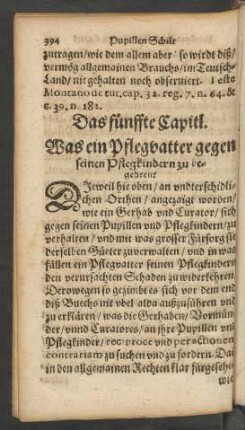 394 Pupillen Schilt
zutragen/ wie dem allem aber/ so wirdt diß/
vermög allgemainen Brauchs/ im Teutsch-
Land/ nit gehalten noch obseruiert. Teste
Montano de tut. cap. 32. reg. 7. n. 64. &
c. 39. n. 181.
Das fünffte Capitl.
Was ein Pflegvatter gegen
seinen Pflegkindern zu be-
gehren?
DJeweil hie oben/ an vnderschidli-
chen Orthen/ angezaigt worden/
wie ein Gerhab vnd Curator/ sich
gegen seinen Pupillen vnd Pflegkindern/ zu
verhalten/ vnd mit was grosser Fürsorg sie
derselben Güeter zuverwalten/ vnd in was
fällen ein Pflegvatter seinen Pflegkindern
den verursachten Schaden zu widerkehren.
Derowegen so gezimbt es sich vor dem end
diß Buechs nit vbel alda außzuführen vnd
zu erklären/ was die Gerhaben/ Vormün-
der/ vnnd Curatores/ an jhre Pupillen vnd
Pflegkinder/ reciproce vnd per actionem
contrariam zu suchen vnd zu fordern. Dan
in den allgemainen Rechten klar fürgesehen/
wie